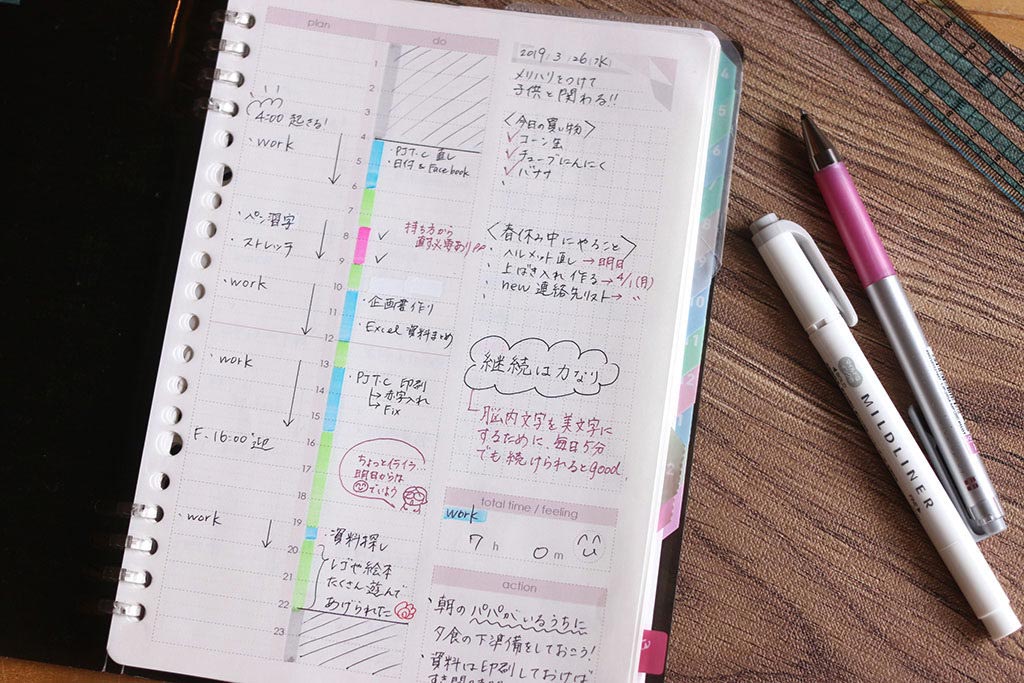 plan
do
1
2
3
4
5
6
7
8
9
10
11
12
13
14
15
16
17
18
19
20
21
22
23
4:00 起きる!
・work
・ペン習字
・ストレッチ
・work
・work
F. 16:00 迎
・work
・PJT.C 直し
・日付&Facebook
持ち方から
直す必要あり
・企画書作り
・Excel 資料まとめ
・PJT.C 印刷
→赤字入れ
→Fix
ちょっとイライラ
明日からは
でいよう
・資料探し
レゴや絵本
たくさん遊んで
あげられた
2019 / 3 / 26 (水)
メリハリをつけて
子供と関わる!!
〈今日の買い物〉
✓コーン缶
✓チューブにんにく
✓バナナ
〈春休み中にやること〉
・ヘルメット直し→明日
・上ばき入れ作る→4/1(月)
・new 連絡先リスト→〃
継続は力なり
脳内文字を美文字に
するために、毎日5分
でも続けられるとgood
total time / feeling
work
7 h 0 m
action
・朝のパパがいるうちに
夕食の下準備をしておこう!
・資料は印刷しておけば
4
5
6
7
8
9
10
11
MILDLINER